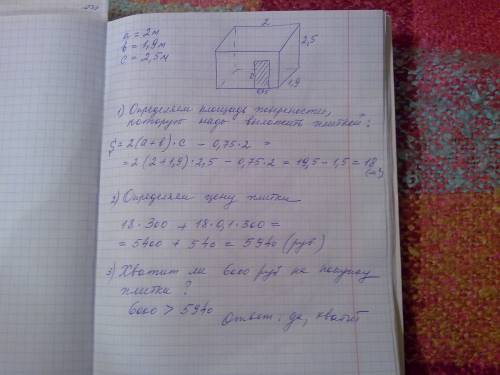 a = 2м
b = 1,9м
c = 2,5м
2
2,5
1,9
2
0,75
1) Определяем площадь поверхности,
которую надо выложить плиткой:
S = 2(a+b)·c − 0,75·2 =
= 2(2+1,9)·2,5 − 0,75·2 = 19,5 − 1,5 = 18
(м²)
2) Определяем цену плитки
18·300 + 18·0,1·300 =
= 5400 + 540 = 5940 (руб)
3) Хватит ли 6000 руб на покупку
плитки?
6000 > 5940
Ответ: да, хватит